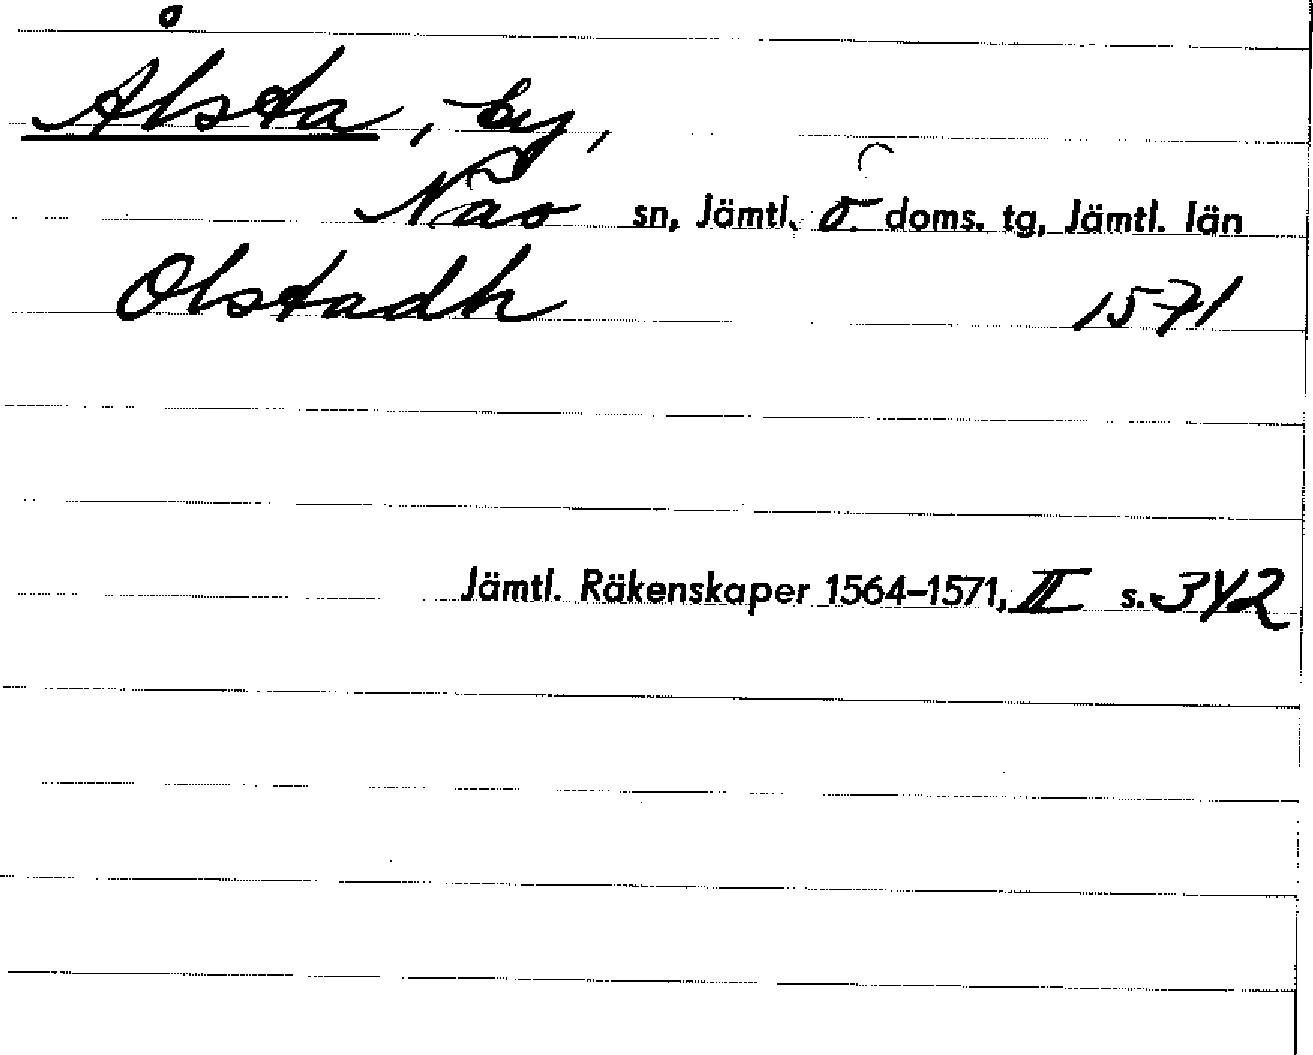 Ålsta, by,
Näs sn, Jämtl. ö. doms. tg, Jämtl. län
Olstadh 1571
Jämtl. Räkenskaper 1564–1571, II s. 342